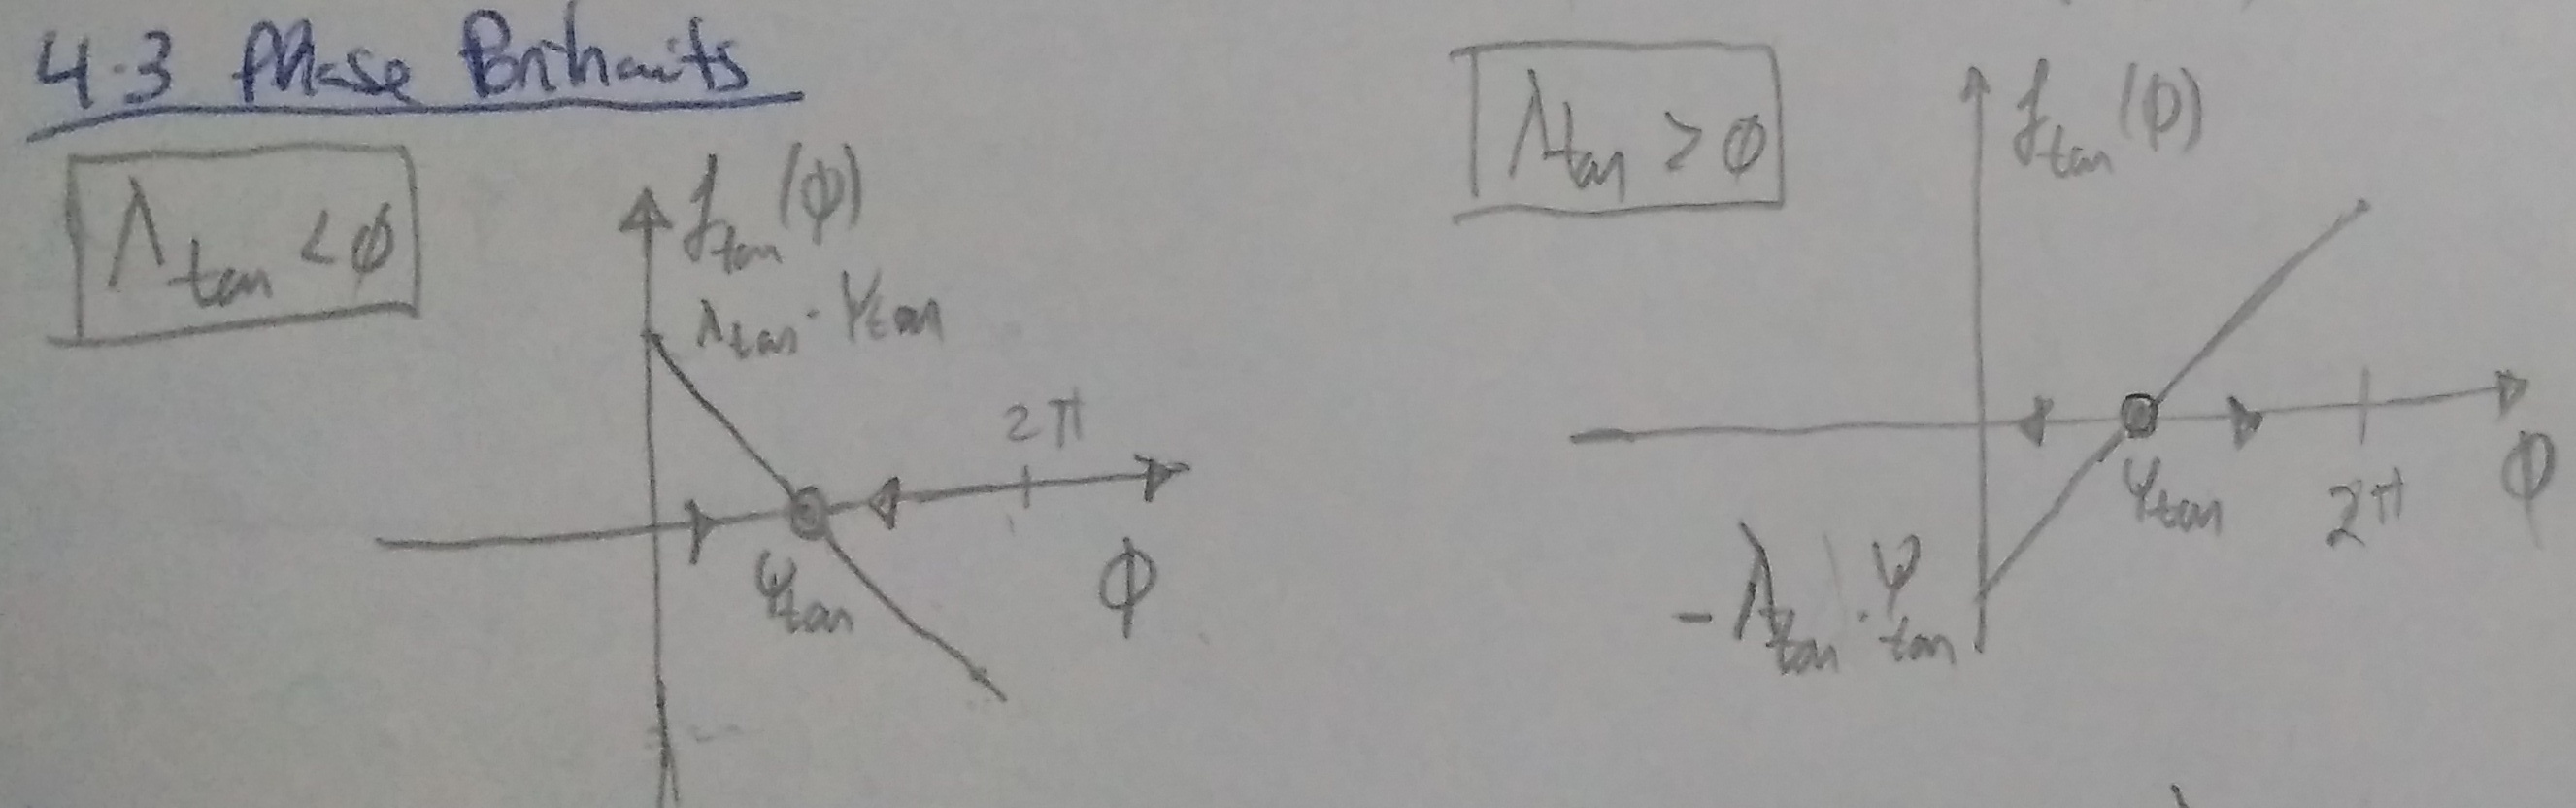 4.3 Phase Portraits
λ_tan < 0
f_tan(ϕ)
λ_tan · Ψ_tan
2π
Ψ_tan
ϕ
λ_tan > 0
f_tan(ϕ)
Ψ_tan
2π
ϕ
- λ_tan · Ψ_tan